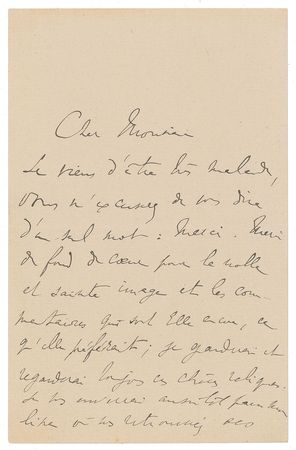 Cher Monsieur
Je viens d'être très malade,
Vous m'excusez de vous dire
d'un seul mot : Merci. Merci
du fond du cœur pour la noble
et sainte image et les com-
mentaires qui sont Elle encore, ce
qu'elle préférait ; je garderai et
regarderai toujours ces chères reliques.
Je les
lire